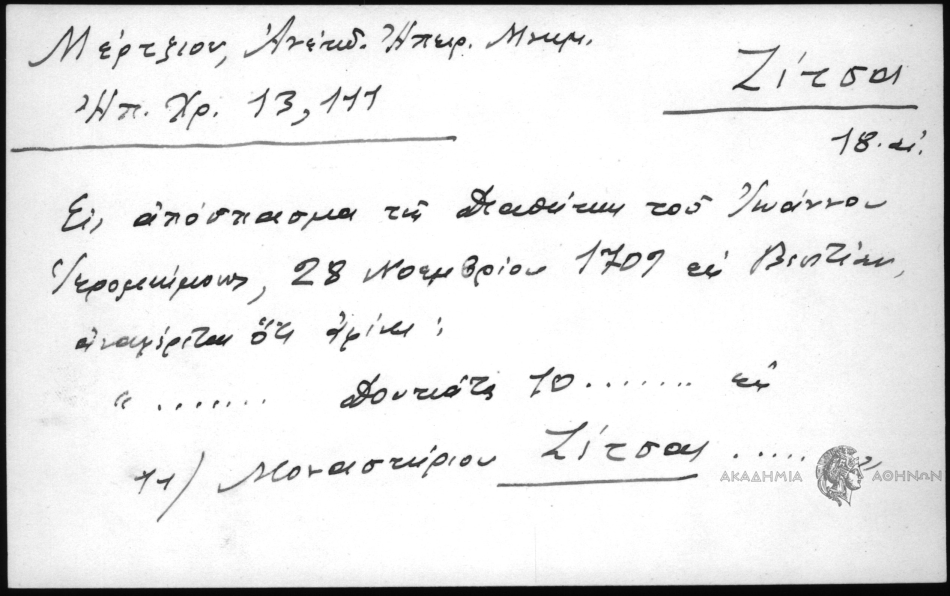 Μέρτζιου, Ἀνέκδ. Ἠπειρ. Μνημ.
Ἠπ. Χρ. 13, 111
Ζίτσα
18. αἰ.
Εἰς ἀπόσπασμα τῆς Διαθήκης τοῦ Ἰωάννου
Ἱερομονάχου, 28 Νοεμβρίου 1709 ἐκ Βενετίας,
ἀναφέρεται ὅτι ἀφίνει :
" ....... Δουκάτα 10 ....... εἰς
τὸ Μοναστήριον Ζίτσα ..... "
ΑΚΑΔΗΜΙΑ ΑΘΗΝΩΝ